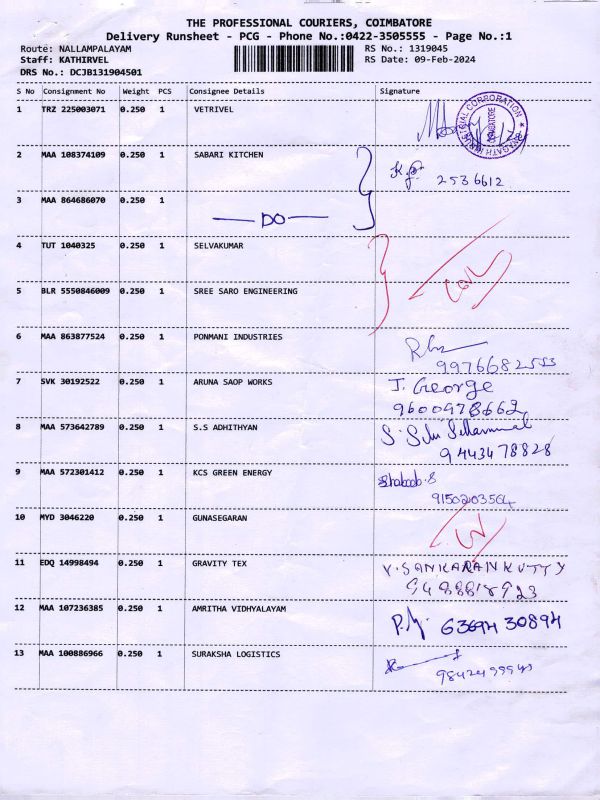 THE PROFESSIONAL COURIERS, COIMBATORE
Delivery Runsheet - PCG - Phone No.:0422-3505555 - Page No.:1
Route: NALLAMPALAYAM RS No.: 1319045
Staff: KATHIRVEL RS Date: 09-Feb-2024
DRS No.: DCJB131904501
S No Consignment No Weight PCS Consignee Details Signature
1 TRZ 225003071 0.250 1 VETRIVEL
2 MAA 108374109 0.250 1 SABARI KITCHEN
2536612
3 MAA 864686070 0.250 1
DO
4 TUT 1040325 0.250 1 SELVAKUMAR
5 BLR 5550846009 0.250 1 SREE SARO ENGINEERING
6 MAA 863877524 0.250 1 PONMANI INDUSTRIES
9976682553
7 SVK 30192522 0.250 1 ARUNA SAOP WORKS J. George
9600978662
8 MAA 573642789 0.250 1 S.S ADHITHYAN
9443478828
9 MAA 572301412 0.250 1 KCS GREEN ENERGY
9150203564
10 MYD 3046220 0.250 1 GUNASEGARAN
11 EDQ 14998494 0.250 1 GRAVITY TEX V.SANKARANKUTTY
9488818923
12 MAA 107236385 0.250 1 AMRITHA VIDHYALAYAM
63694 30894
13 MAA 100886966 0.250 1 SURAKSHA LOGISTICS